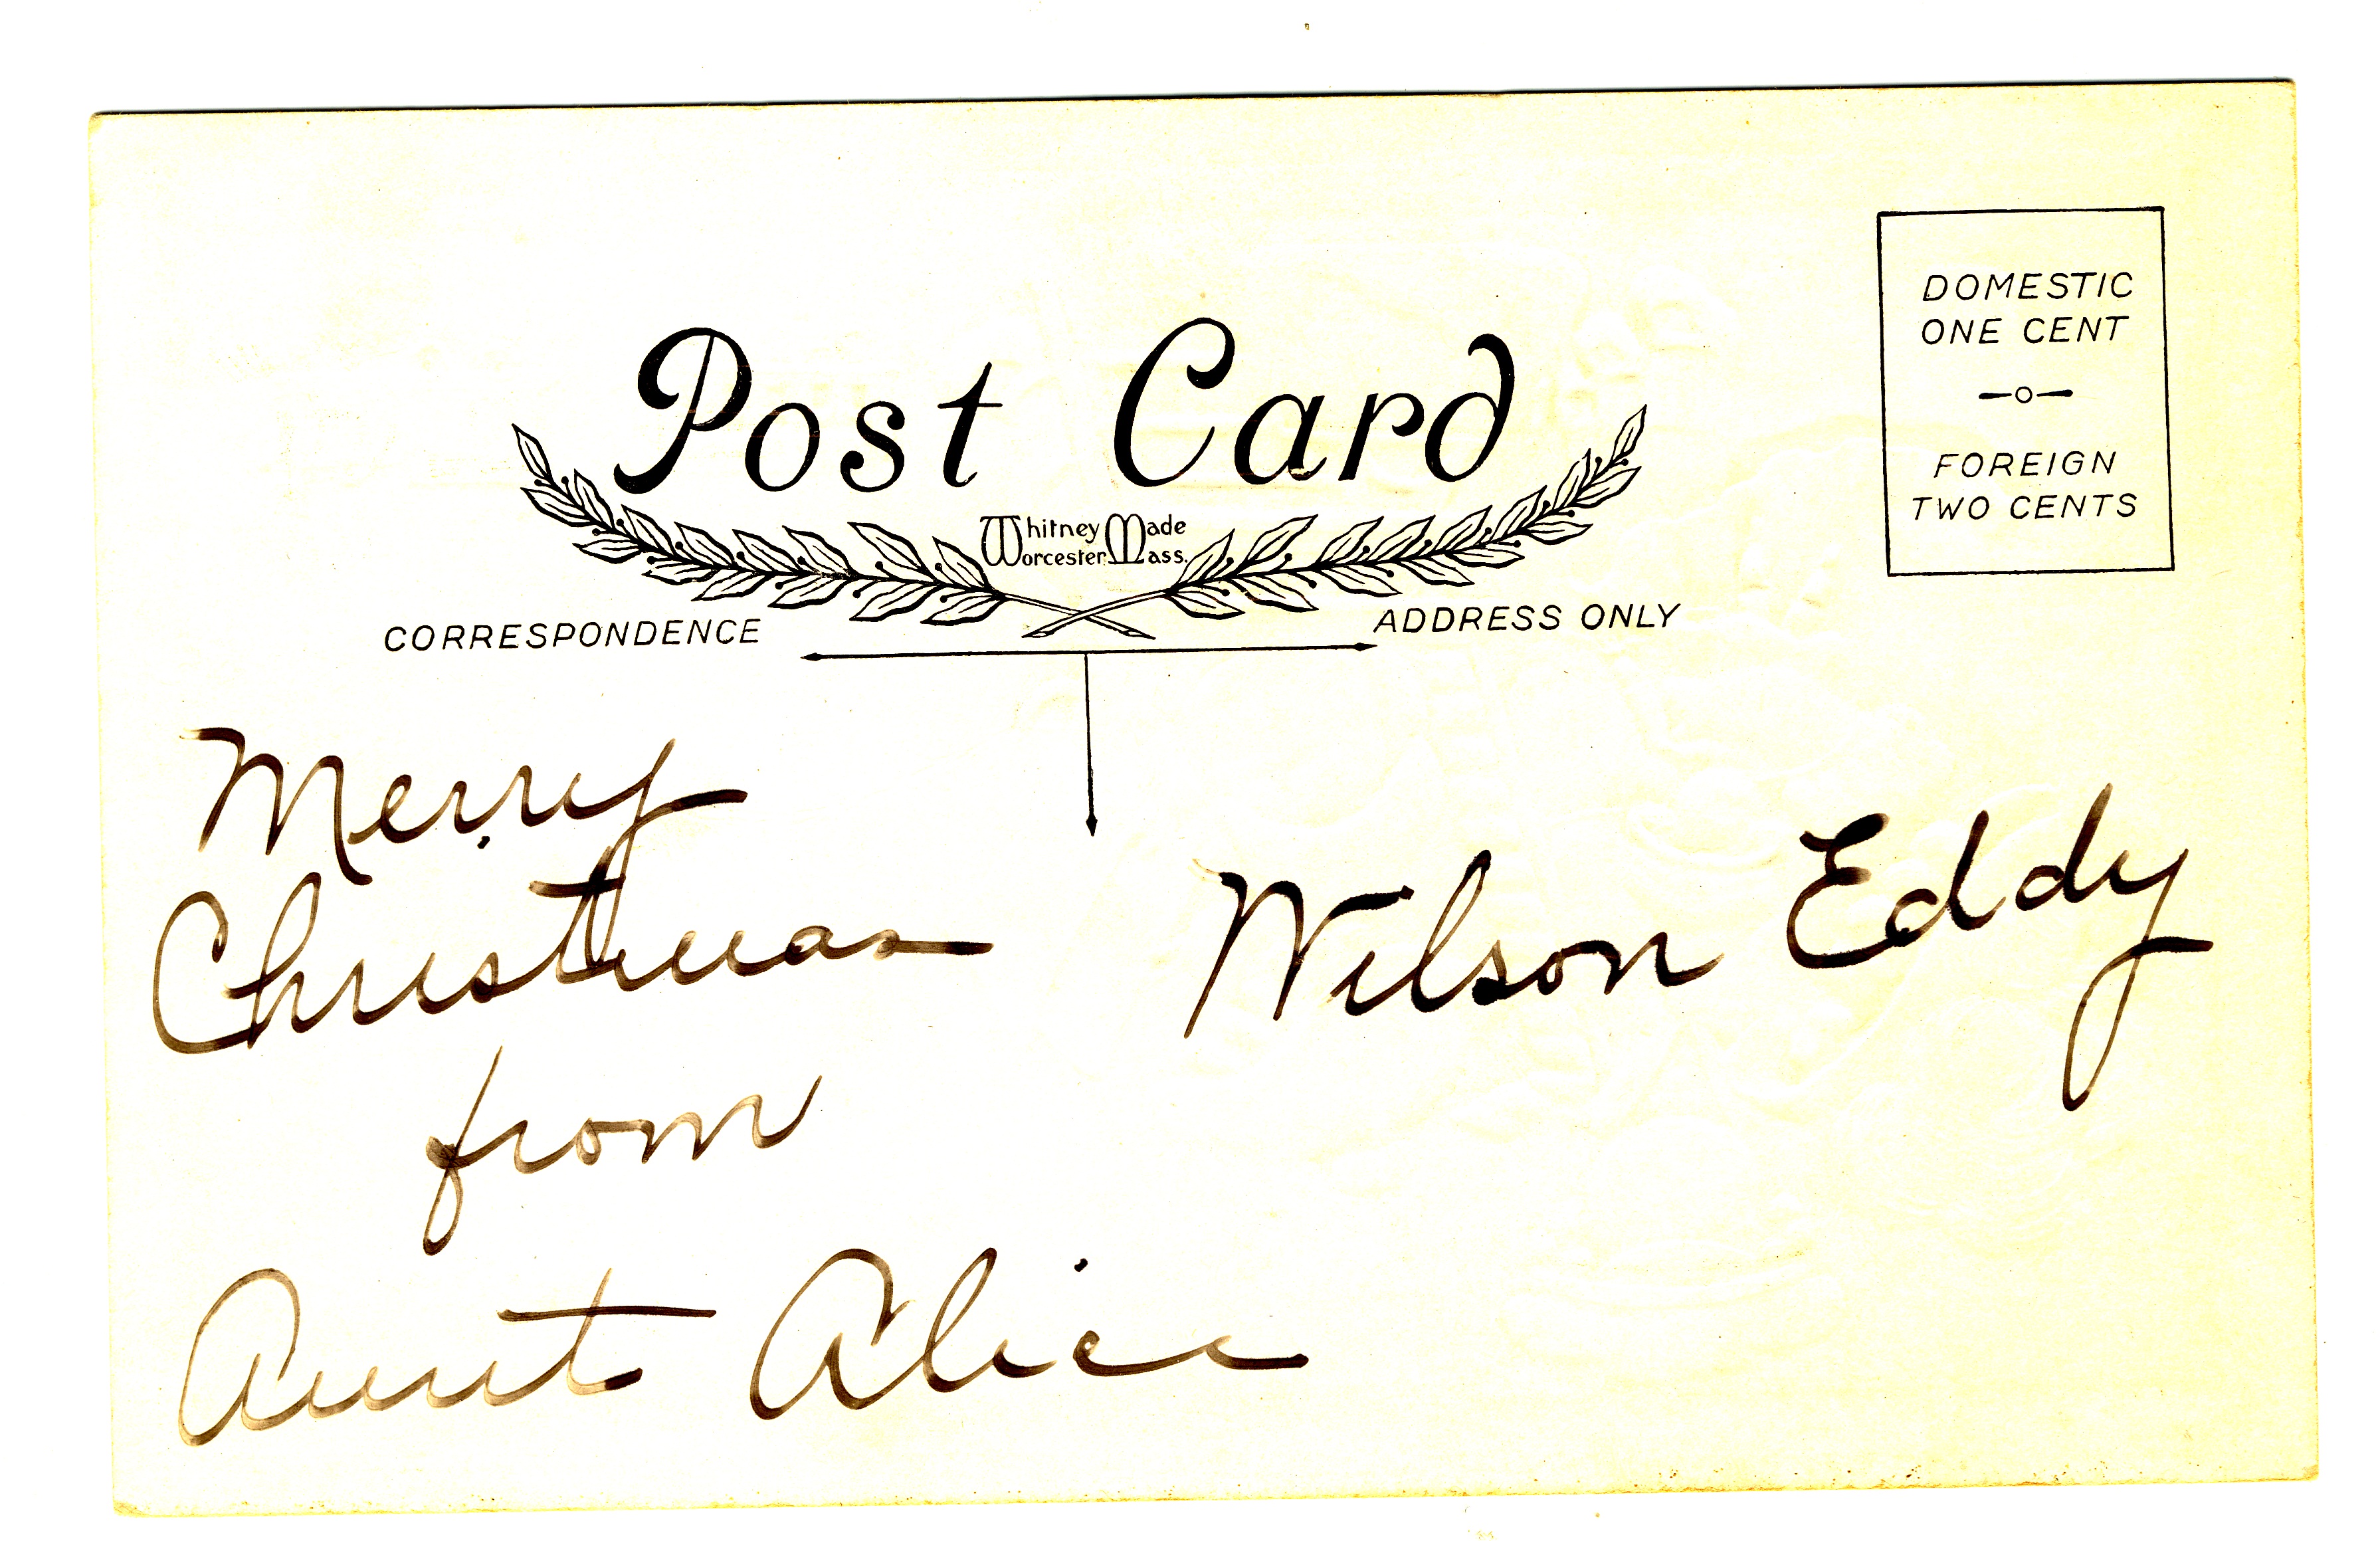 Post Card
Whitney Made
Worcester Mass.
DOMESTIC
ONE CENT
FOREIGN
TWO CENTS
CORRESPONDENCE
ADDRESS ONLY
Merry
Christmas
from
Aunt Alice
Wilson Eddy